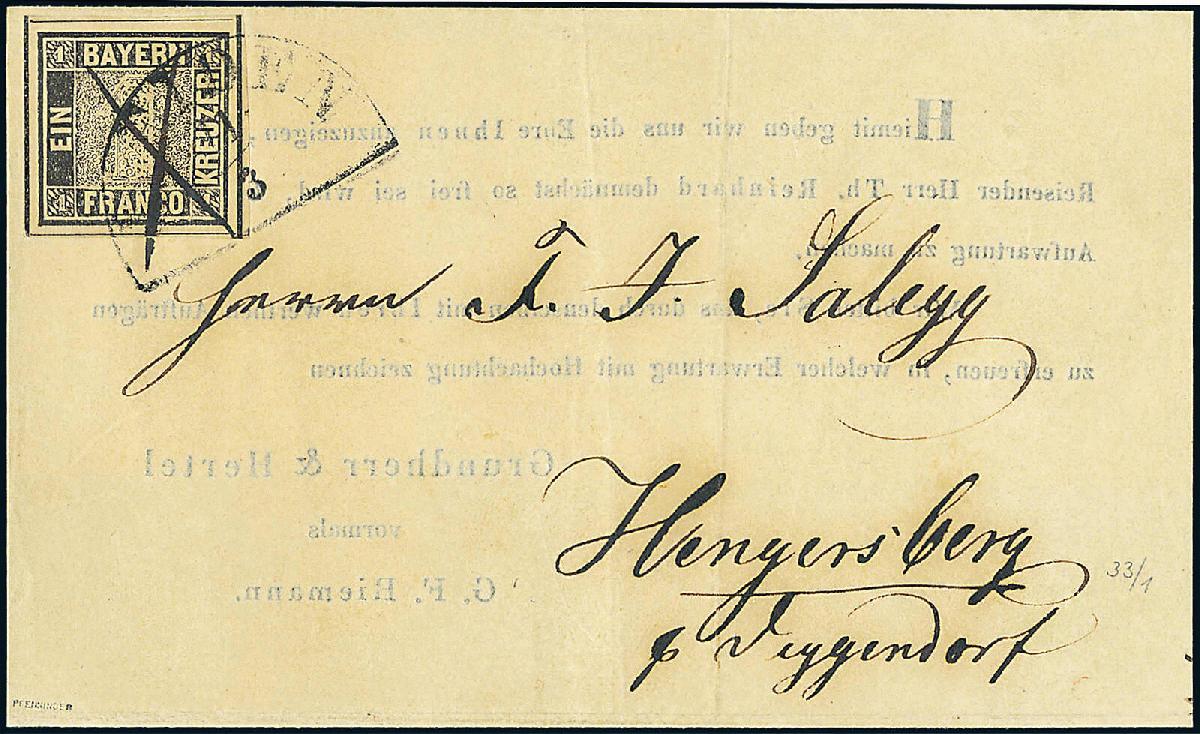 1 BAYERN 1
EIN
KREUZER
1 FRANCO 1
DEN
Hiemit geben wir uns die Ehre Ihnen anzuzeigen,
Reisender Herr Th. Reinhard demnächst so frei sei wird,
Aufwartung zu machen.
durch denselben mit Ihren werthen Aufträgen
zu erfreuen, in welcher Erwartung mit Hochachtung zeichnen
Grundherr & Hertel
vormals
G. F. Riemann.
Herrn F. J. Salegg
Hengersberg
p Deggendorf
33/1
PFENNINGER